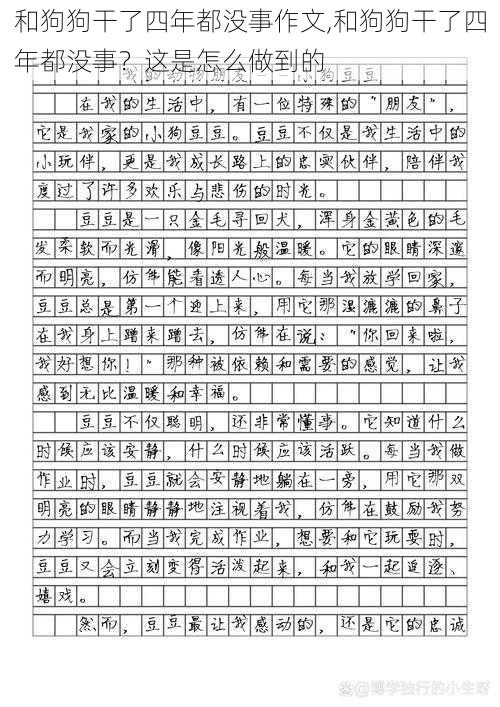 和狗狗干了四年都没事作文,和狗狗干了四
年都没事？这是怎么做到的
我的动物朋友——小狗豆豆
在我的生活中，有一位特殊的“朋友”，
它是我家的小狗豆豆。豆豆不仅是我生活中的
小玩伴，更是我成长路上的忠实伙伴，陪伴我
度过了许多欢乐与悲伤的时光。
豆豆是一只金毛寻回犬，浑身金黄色的毛
发柔软而光滑，像阳光般温暖。它的眼睛深邃
而明亮，仿佛能看透人心。每当我放学回家，
豆豆总是第一个迎上来，用它那湿漉漉的鼻子
在我身上蹭来蹭去，仿佛在说：“你回来啦，
我好想你！”那种被依赖和需要的感觉，让我
感到无比温暖和幸福。
豆豆不仅聪明，还非常懂事。它知道什么
时候应该安静，什么时候应该活跃。每当我做
作业时，豆豆就会安静地躺在一旁，用它那双
明亮的眼睛静静地注视着我，仿佛在鼓励我努
力学习。而当我完成作业，想要和它玩耍时，
豆豆又会立刻变得活泼起来，和我一起追逐、
嬉戏。
然而，豆豆最让我感动的，还是它的忠诚
@博学独行的小生呀